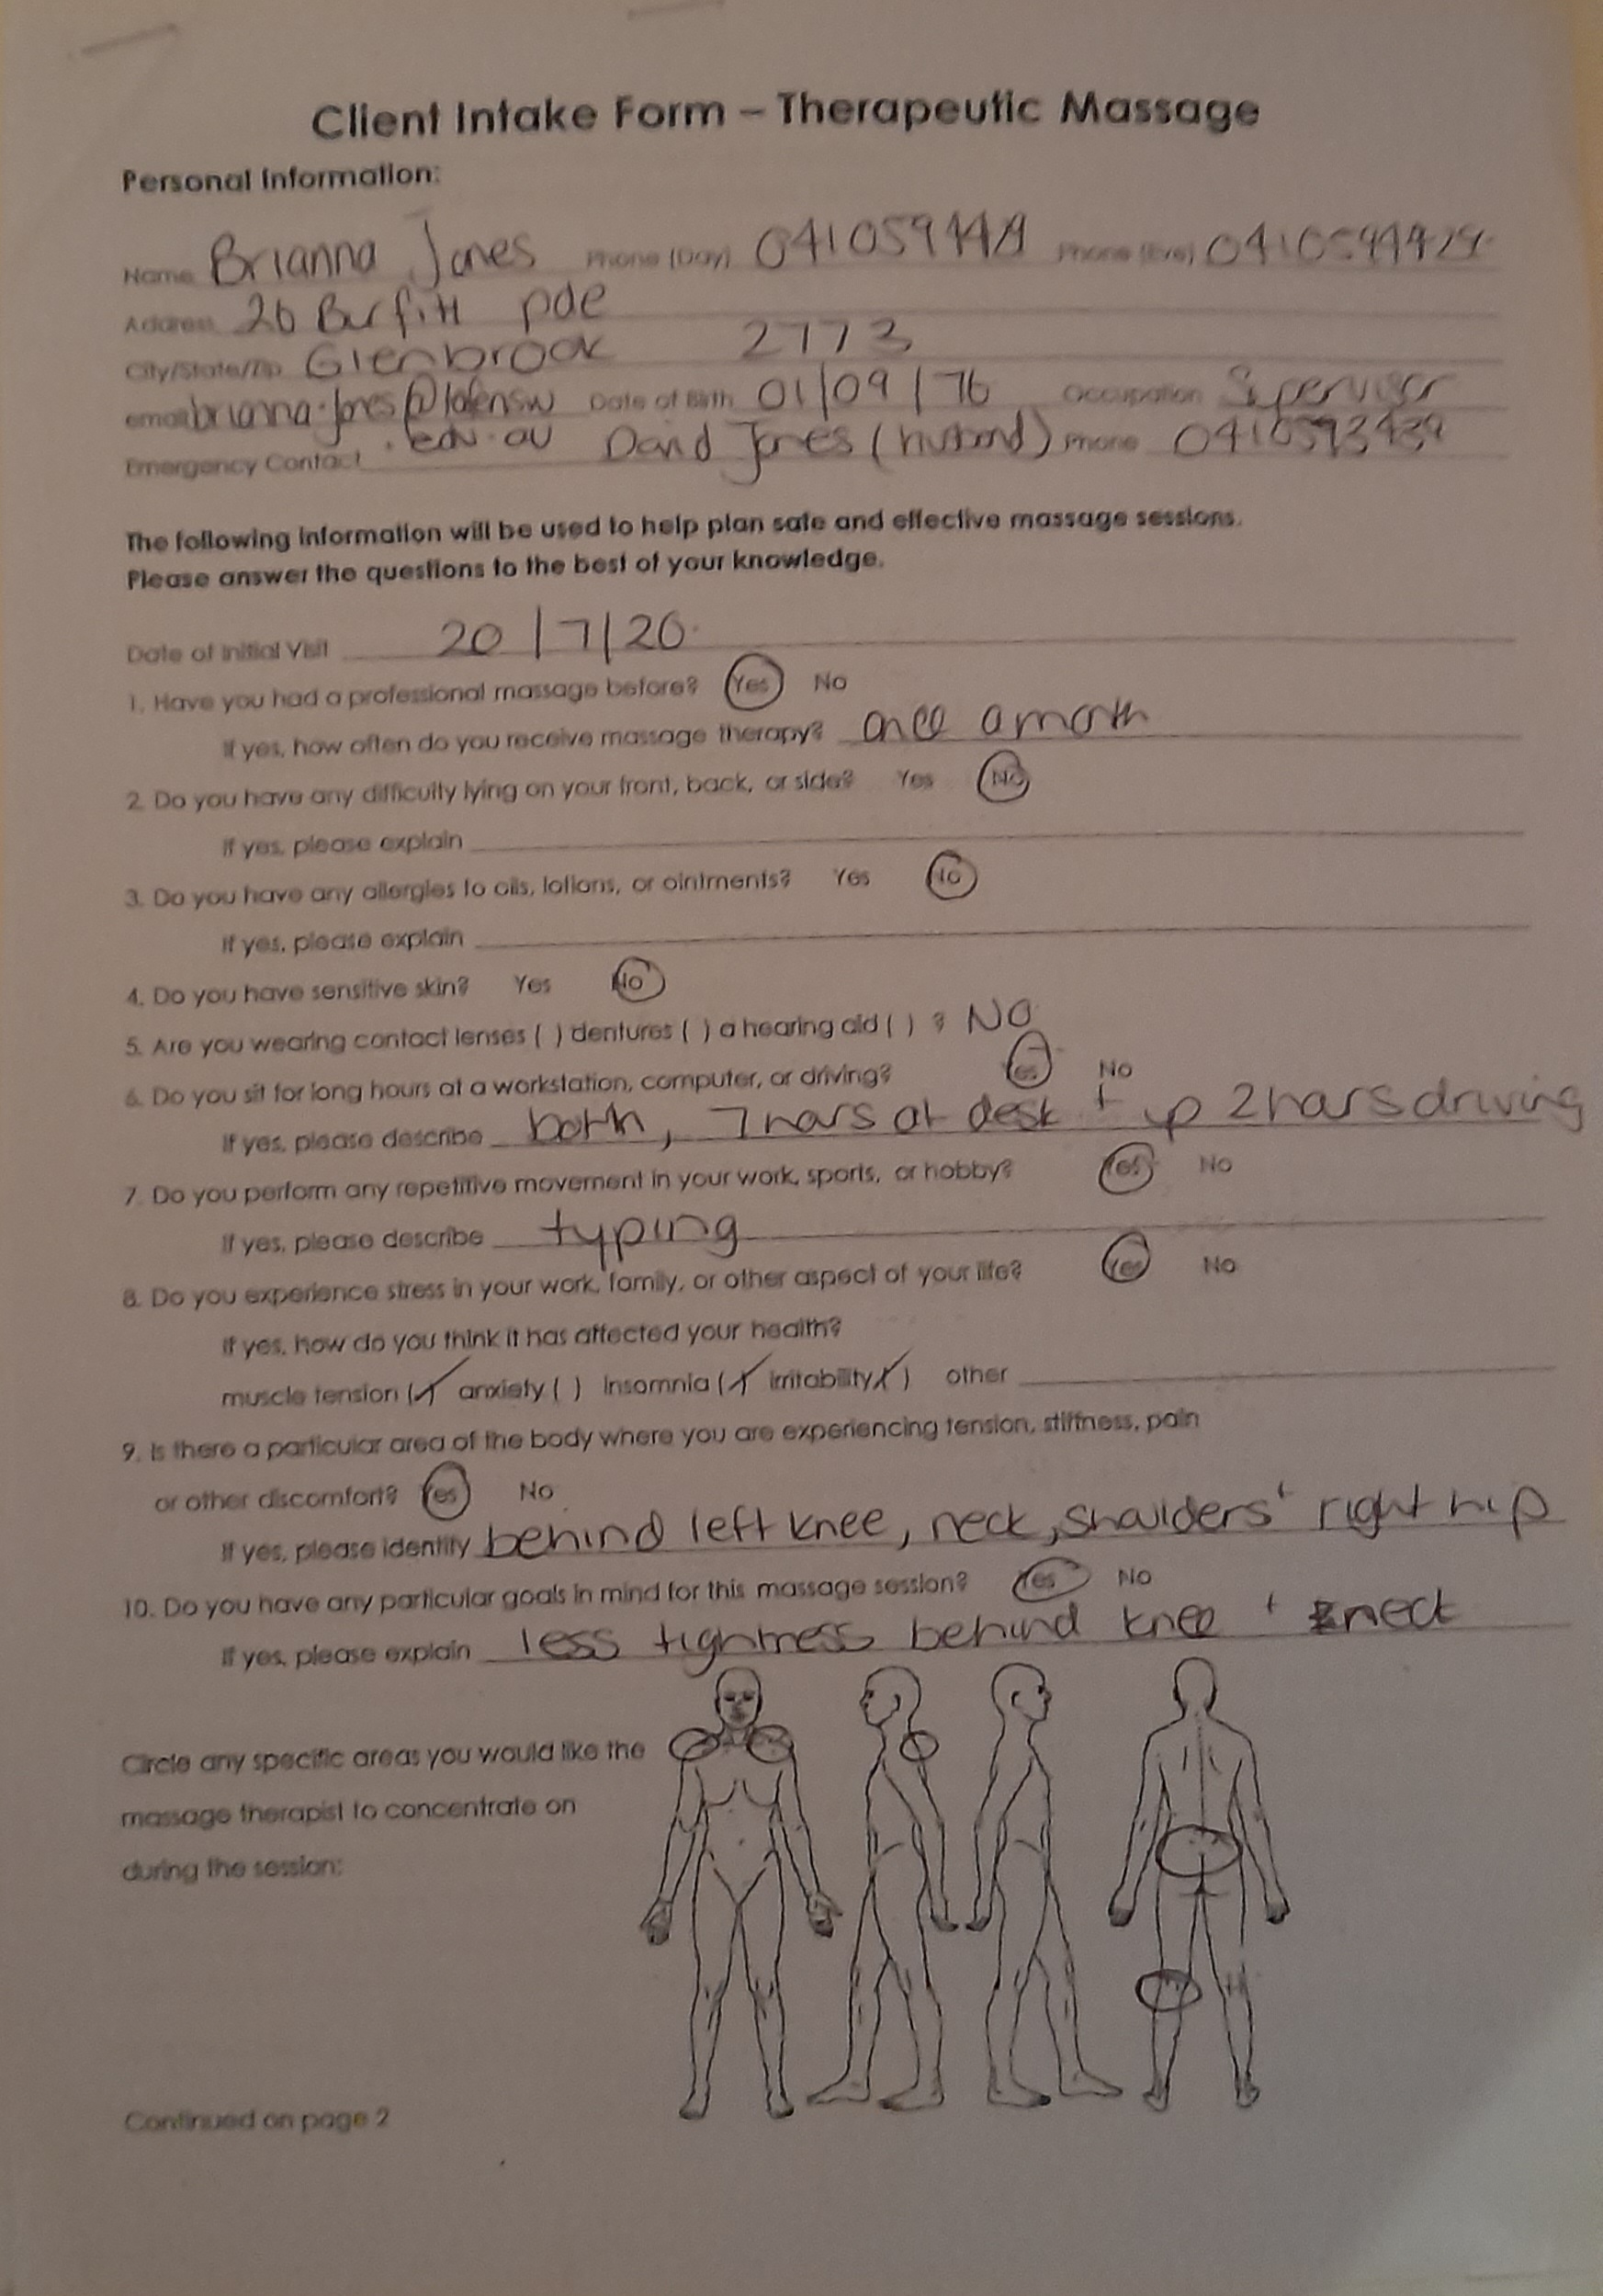 Client Intake Form – Therapeutic Massage
Personal Information:
Name Brianna Jones Phone (Day) Phone (Eve)
Address 26 Burfitt pde
City/State/Zip Glenbrook 2773
email brianna.jones@tafensw Date of Birth 01/09/76 Occupation Supervisor
.edu.au
Emergency Contact David Jones (husband) Phone
The following information will be used to help plan safe and effective massage sessions.
Please answer the questions to the best of your knowledge.
Date of Initial Visit 20/7/20
1. Have you had a professional massage before? Yes No
If yes, how often do you receive massage therapy? once a month
2. Do you have any difficulty lying on your front, back, or side? Yes No
If yes, please explain
3. Do you have any allergies to oils, lotions, or ointments? Yes No
If yes, please explain
4. Do you have sensitive skin? Yes No
5. Are you wearing contact lenses ( ) dentures ( ) a hearing aid ( ) ? NO
6. Do you sit for long hours at a workstation, computer, or driving? Yes No
If yes, please describe both, 7 hours at desk + up 2 hours driving
7. Do you perform any repetitive movement in your work, sports, or hobby? Yes No
If yes, please describe typing
8. Do you experience stress in your work, family, or other aspect of your life? Yes No
If yes, how do you think it has affected your health?
muscle tension (✓) anxiety ( ) insomnia (✓) irritability (✓) other
9. Is there a particular area of the body where you are experiencing tension, stiffness, pain
or other discomfort? Yes No
If yes, please identify behind left knee, neck, shoulders + right hip
10. Do you have any particular goals in mind for this massage session? Yes No
If yes, please explain less tightness behind knee + neck
Circle any specific areas you would like the
massage therapist to concentrate on
during the session:
Continued on page 2